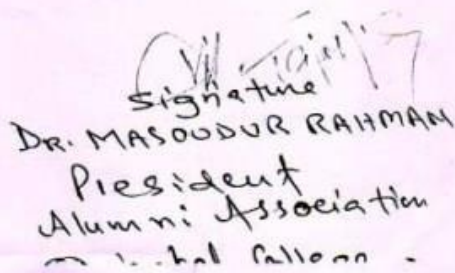 Signature
DR. MASOUDUR RAHMAN
President
Alumni Association